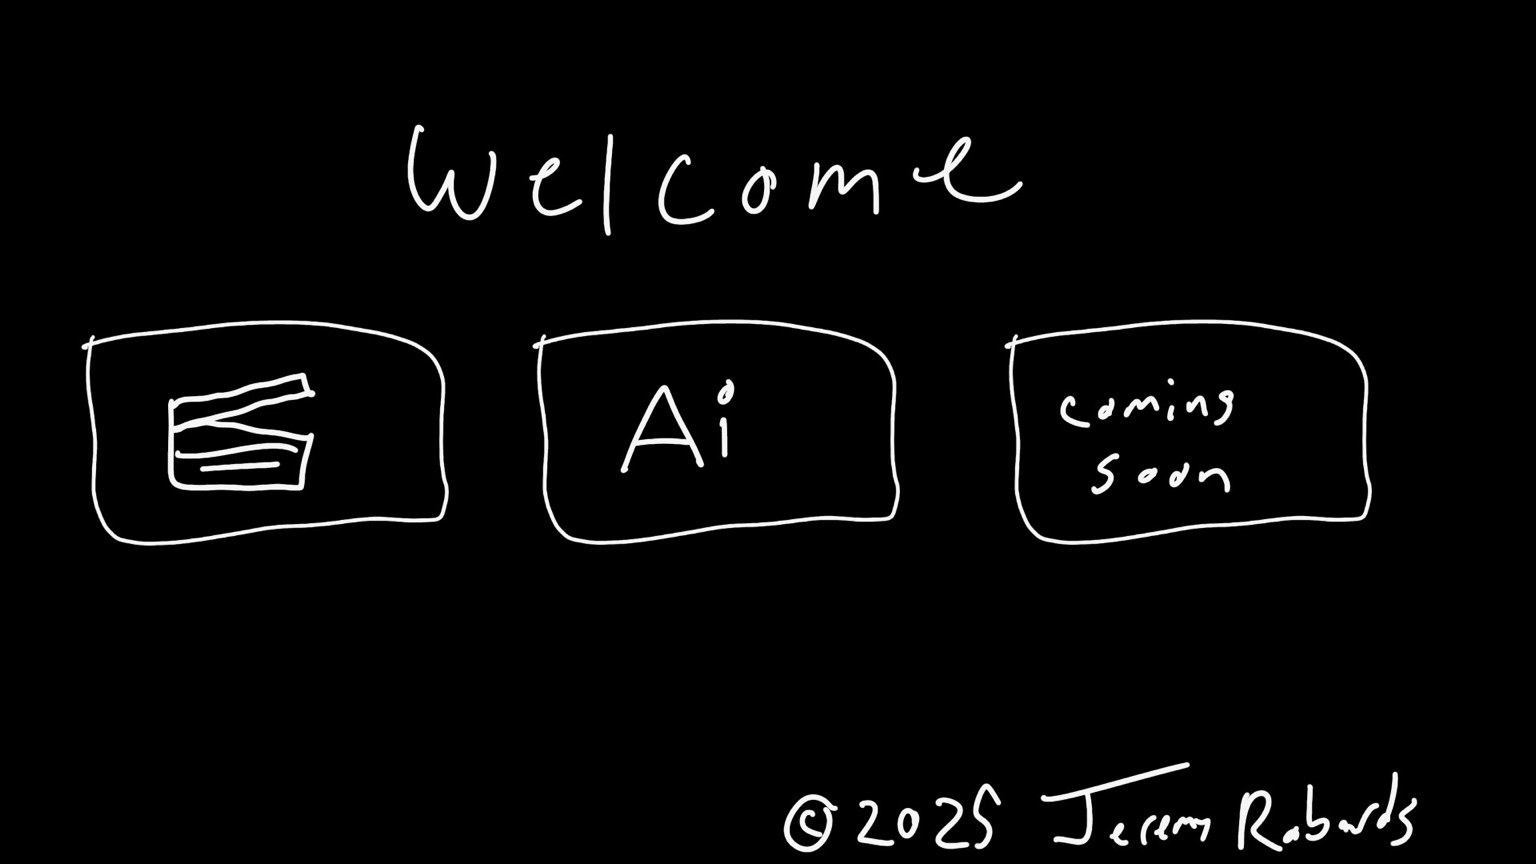 Welcome
Ai
coming
soon
© 2025 Jeremy Rabards